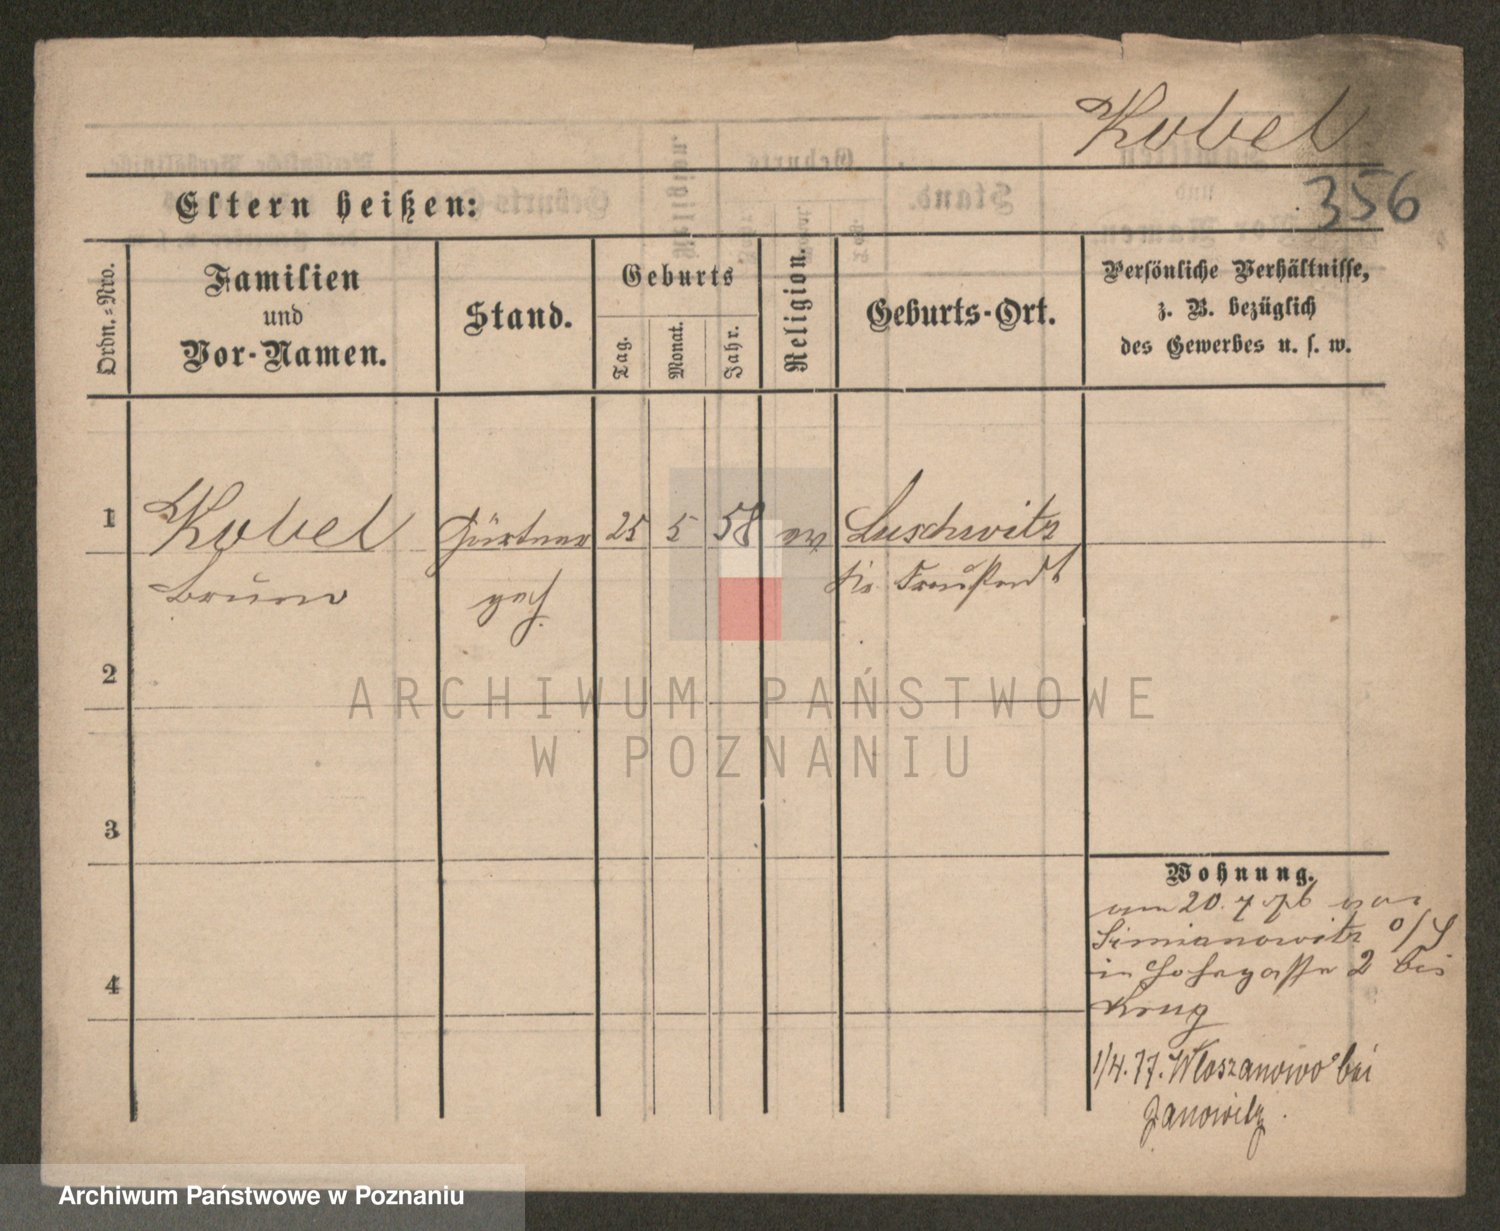 Kobel
356
Eltern heißen:
Ordn.=Nro.
Familien
und
Vor-Namen.
Stand.
Geburts
Tag.
Monat.
Jahr.
Religion.
Geburts-Ort.
Persönliche Verhältnisse,
z. B. bezüglich
des Gewerbes u. s. w.
1
Kobel
Bruno
Gärtner
geh.
25
5
58
ev
Luschwitz
Kr. Fraustadt
2
3
4
Wohnung.
am 20. 7 76 von
Simianowitz O/S
in 2 bei
Krug
1/4. 77. Wloszanowo bei
Janowitz.
ARCHIWUM PAŃSTWOWE
W POZNANIU
Archiwum Państwowe w Poznaniu